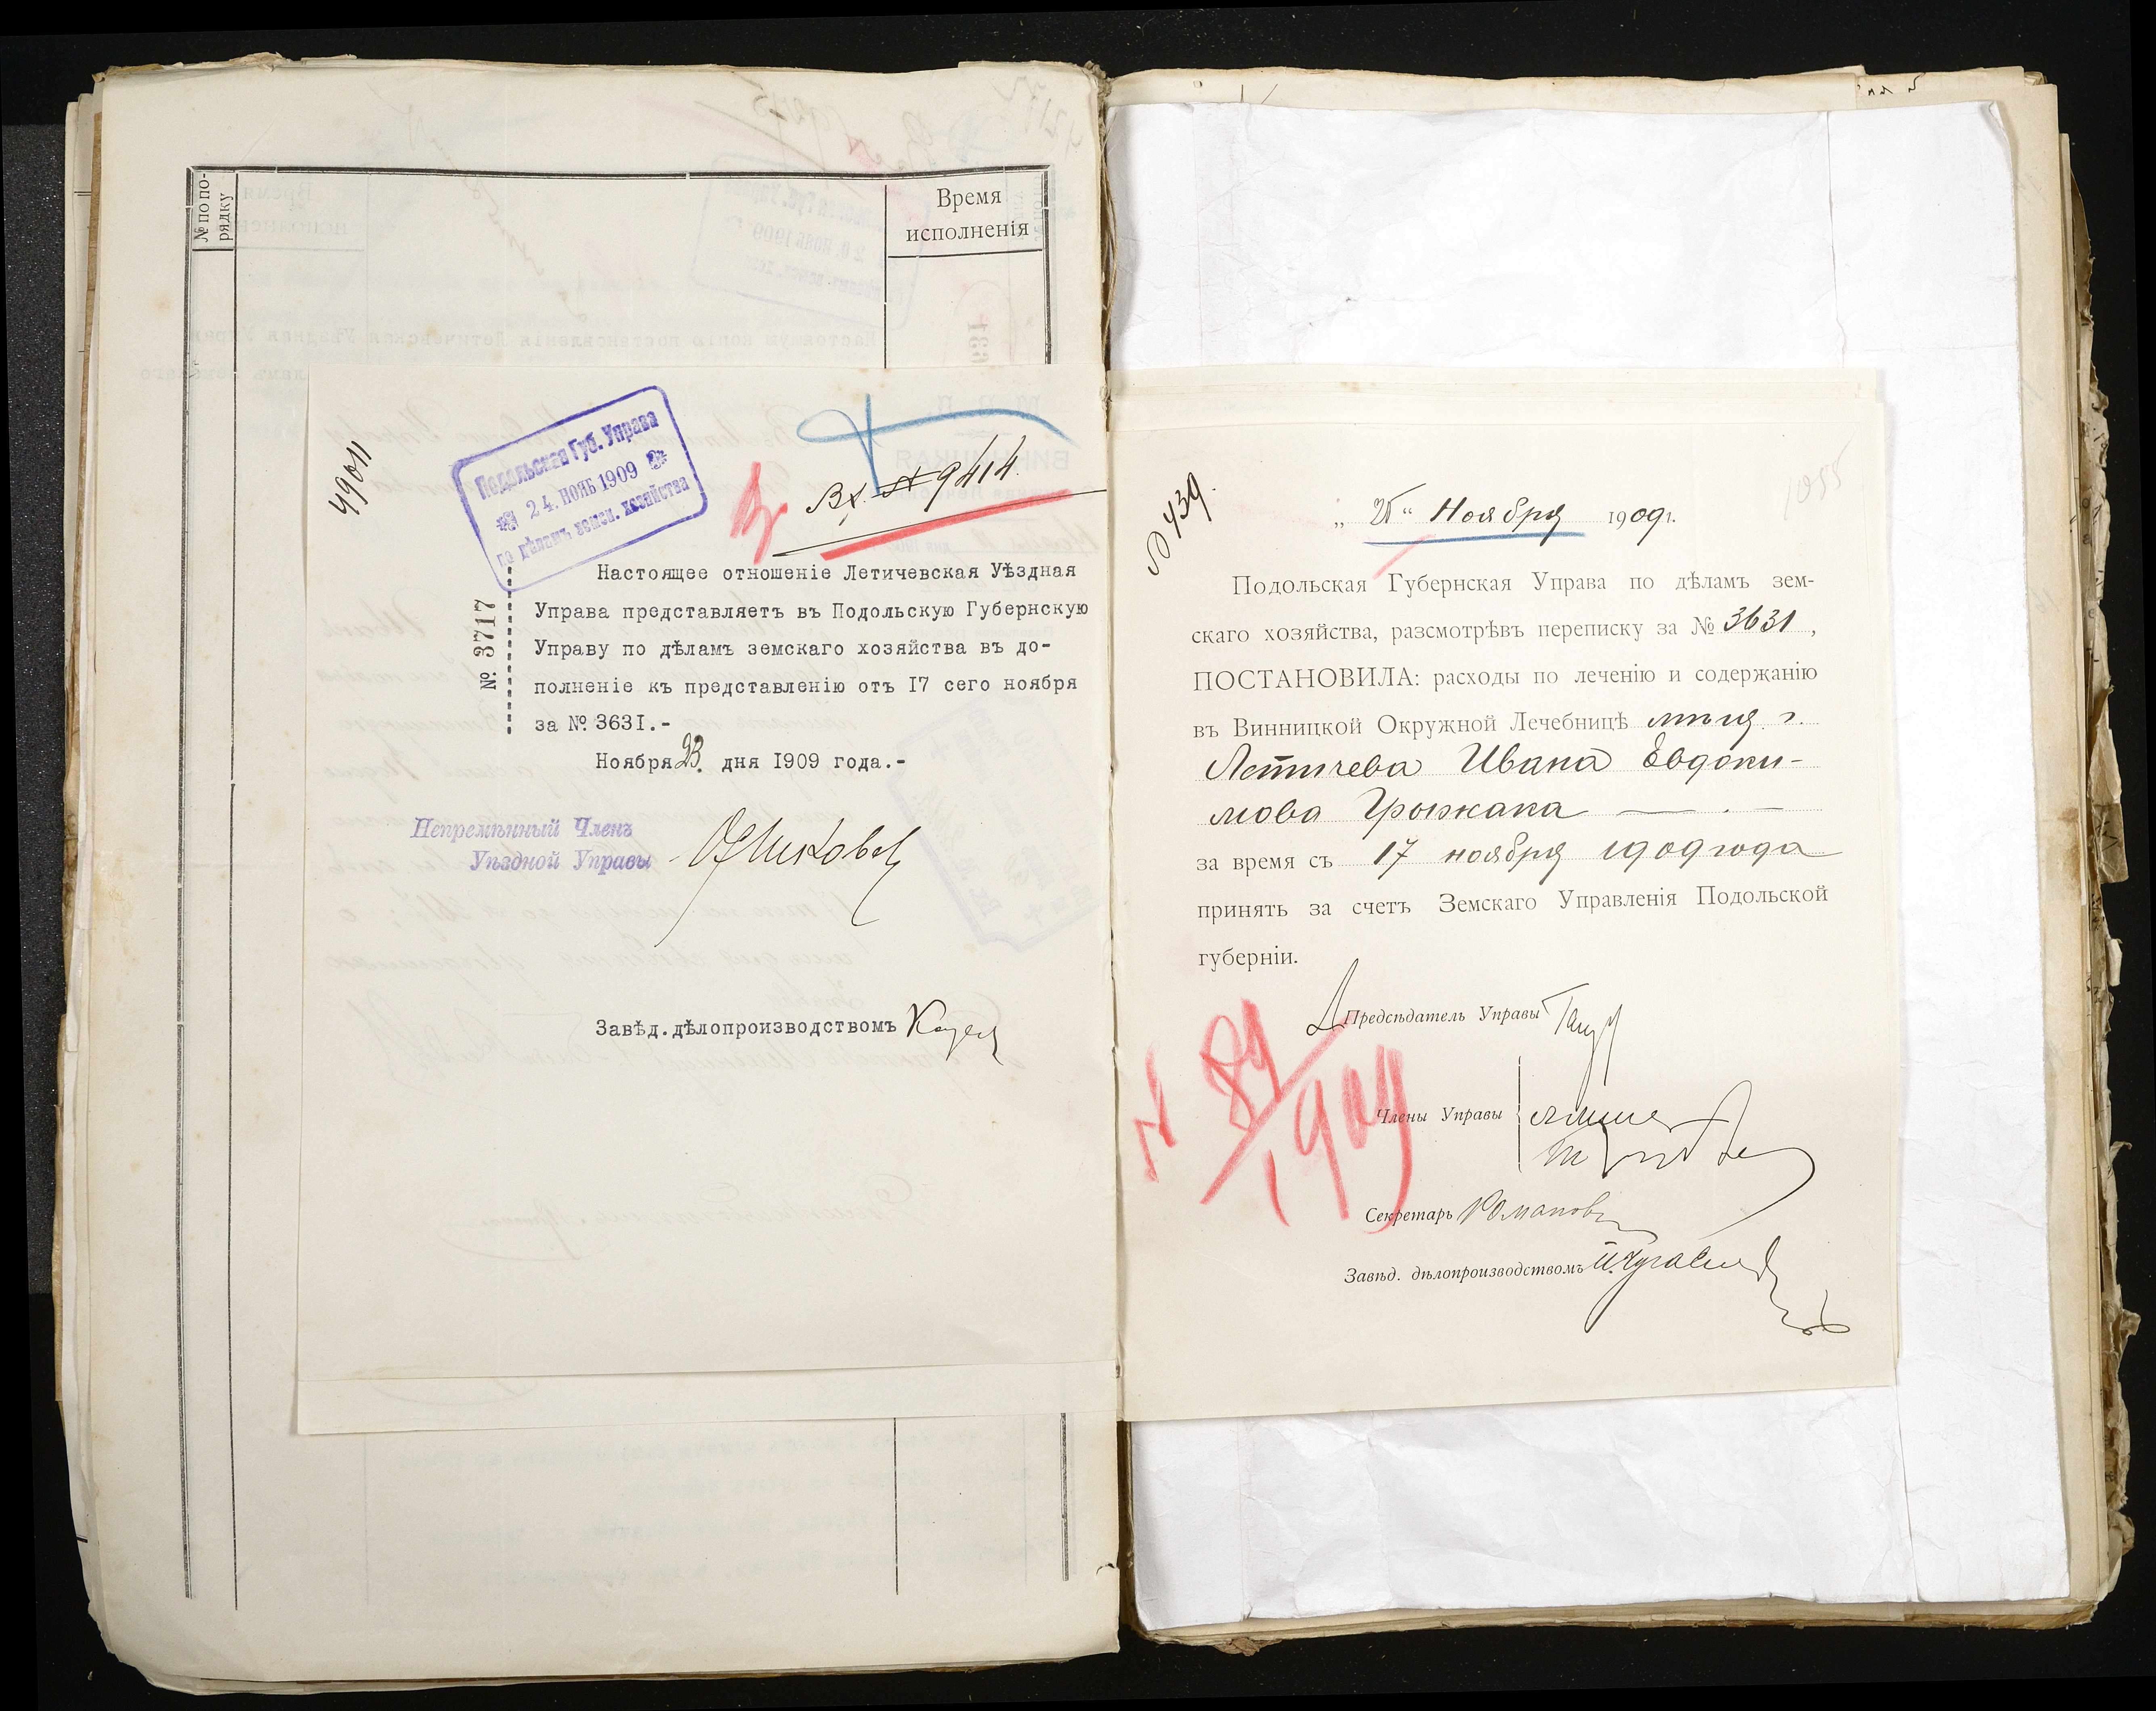 № по по-
рядку
Время
исполненія
49011
Подольская Губ. Управа
24. НОЯБ 1909
по дѣламъ земск. хозяйства
Вх. № 9414.
№ 3717
Настоящее отношеніе Летичевская Уѣздная
Управа представляетъ въ Подольскую Губернскую
Управу по дѣламъ земскаго хозяйства въ до-
полненіе къ представленію отъ 17 сего ноября
за № 3631.-
Ноября 23. дня 1909 года.-
Непремѣнный Членъ
Уѣздной Управы
Завѣд.дѣлопроизводствомъ
№ 439.
1055
" Ноября 1909 г.
Подольская Губернская Управа по дѣламъ зем-
скаго хозяйства, разсмотрѣвъ переписку за № 3631,
ПОСТАНОВИЛА: расходы по леченію и содержанію
въ Винницкой Окружной Лечебницѣ г.
Летичева Ивана Евдоки-
мова Грыжака
за время съ 17 ноября 1909 года
принять за счетъ Земскаго Управленія Подольской
губерніи.
Предсѣдатель Управы
№ 89/1909
Члены Управы
Секретарь Романов
Завѣд. дѣлопроизводствомъ